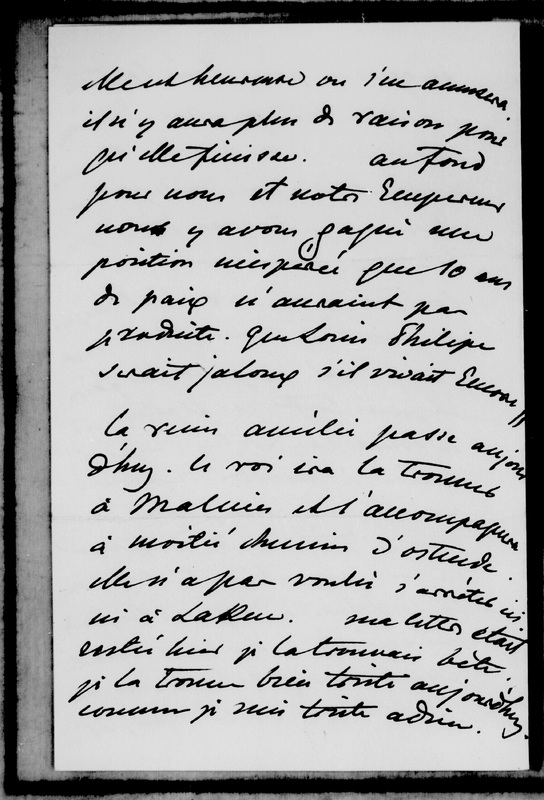 elle est heureuse on s'en amusera
il n'y aura plus de raison pour
qu'elle finisse. au fond
pour nous et notre Empereur
nous y avons gagné une
position inespérée que 10 ans
de paix n'auraient pas
produite. que Louis Philipe
serait jaloux s'il vivait Encore
la reine amélie passe aujour
d'huy. le roi ira la trouver
à Malines et l'accompagnera
à moitié chemin d'ostende.
elle n'a pas voulu s'arrêter ici
ni à Laken. ma lettre était
restée hier je la trouvais bête,
je la trouve bien triste aujourd'huy.
comme je suis triste adieu.